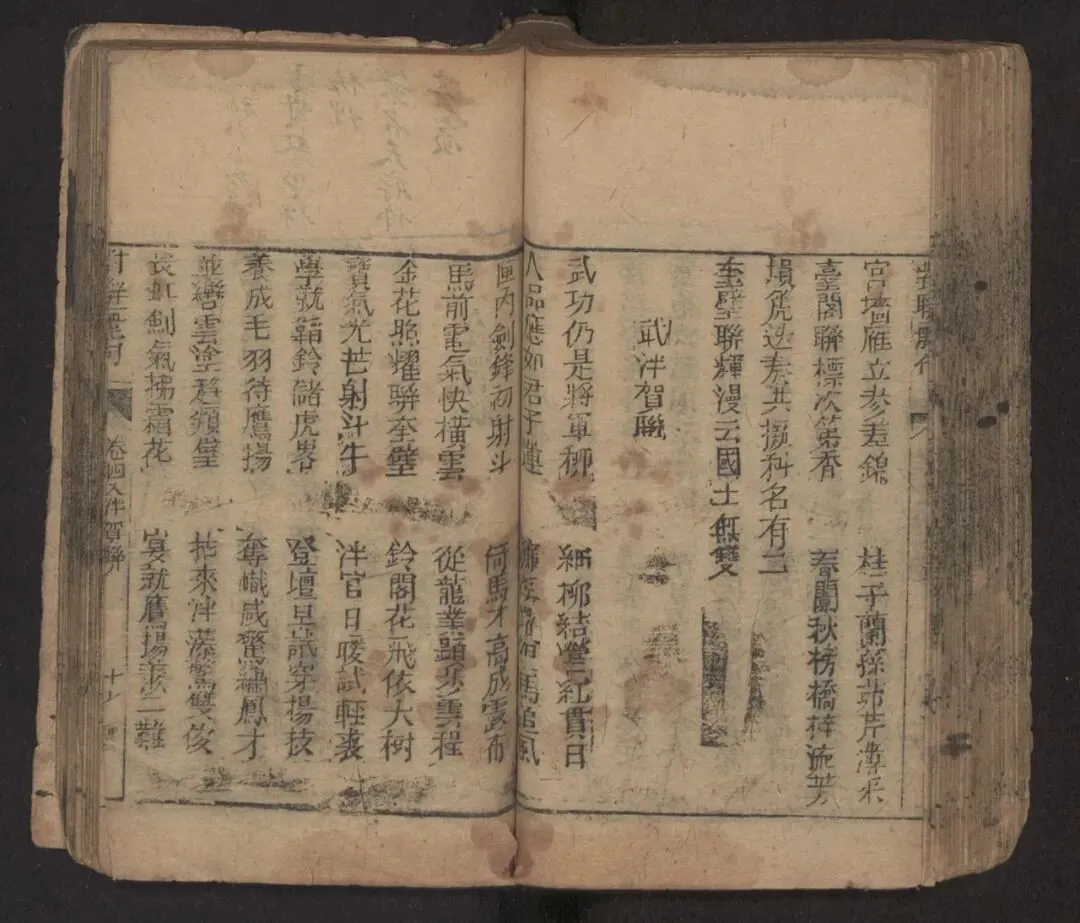 宮墻雁立參差錦　桂子蘭孫茆芹薄采
臺閣聯標次第香　春蘭秋榜橋梓流芳
塤箎迭奏共擬科名有二
奎壁聯輝漫云國士無雙
武泮賀聯
武功仍是將軍柳　細柳結營紅貫日
人品應如君子蓮　馬
匣內劍鋒初射斗　倚馬才高成露布
馬前電氣快橫雲　從龍業顯步雲程
金花照耀聯奎壁　鈴閣花飛依大樹
寶氣光芒射斗牛　泮官日暖試輕裘
學就韜鈴儲虎畧　登壇早試穿揚技
養成毛羽待鷹揚　奪幟咸驚繡鳳才
並轡雲塗趨頖璧　拈來泮藻驚雙俊
長虹劍氣拂霜花　宴就鷹揚羨二難
卷四入泮賀聯　十七